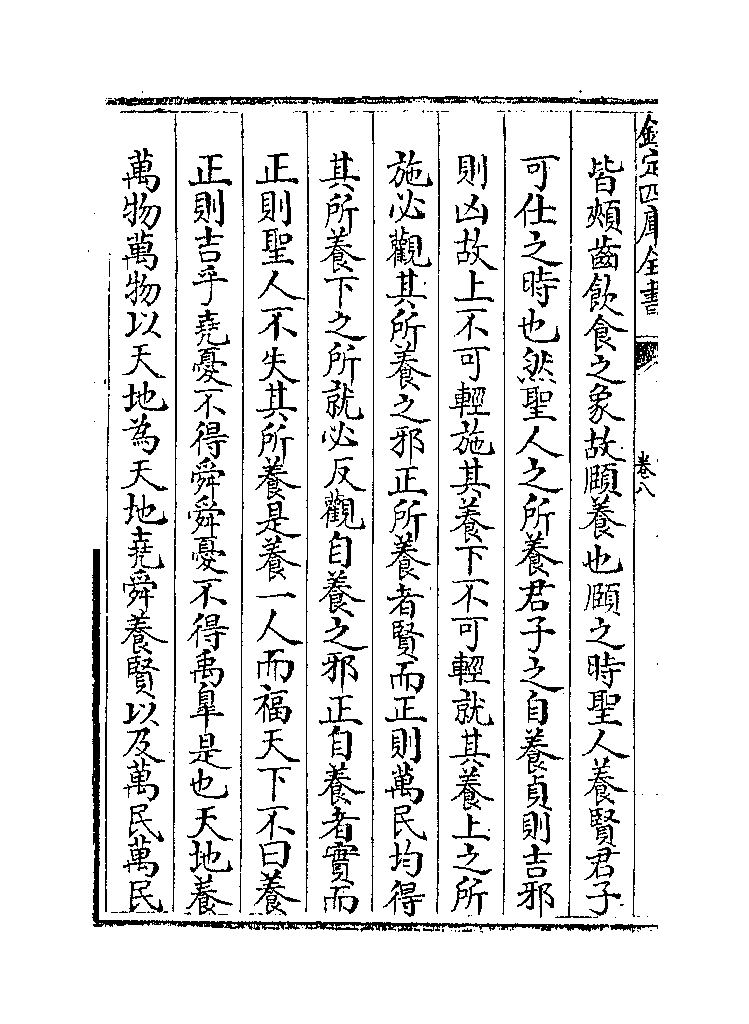 欽定四庫全書
卷八
皆頰齒飲食之象故頤養也頤之時聖人養賢君子
可仕之時也然聖人之所養君子之自養貞則吉邪
則凶故上不可輕施其養下不可輕就其養上之所
施必觀其所養之邪正所養者賢而正則萬民均得
其所養下之所就必反觀自養之邪正自養者實而
正則聖人不失其所養是養一人而福天下不曰養
正則吉乎堯憂不得舜舜憂不得禹臯是也天地養
萬物萬物以天地為天地堯舜養賢以及萬民萬民